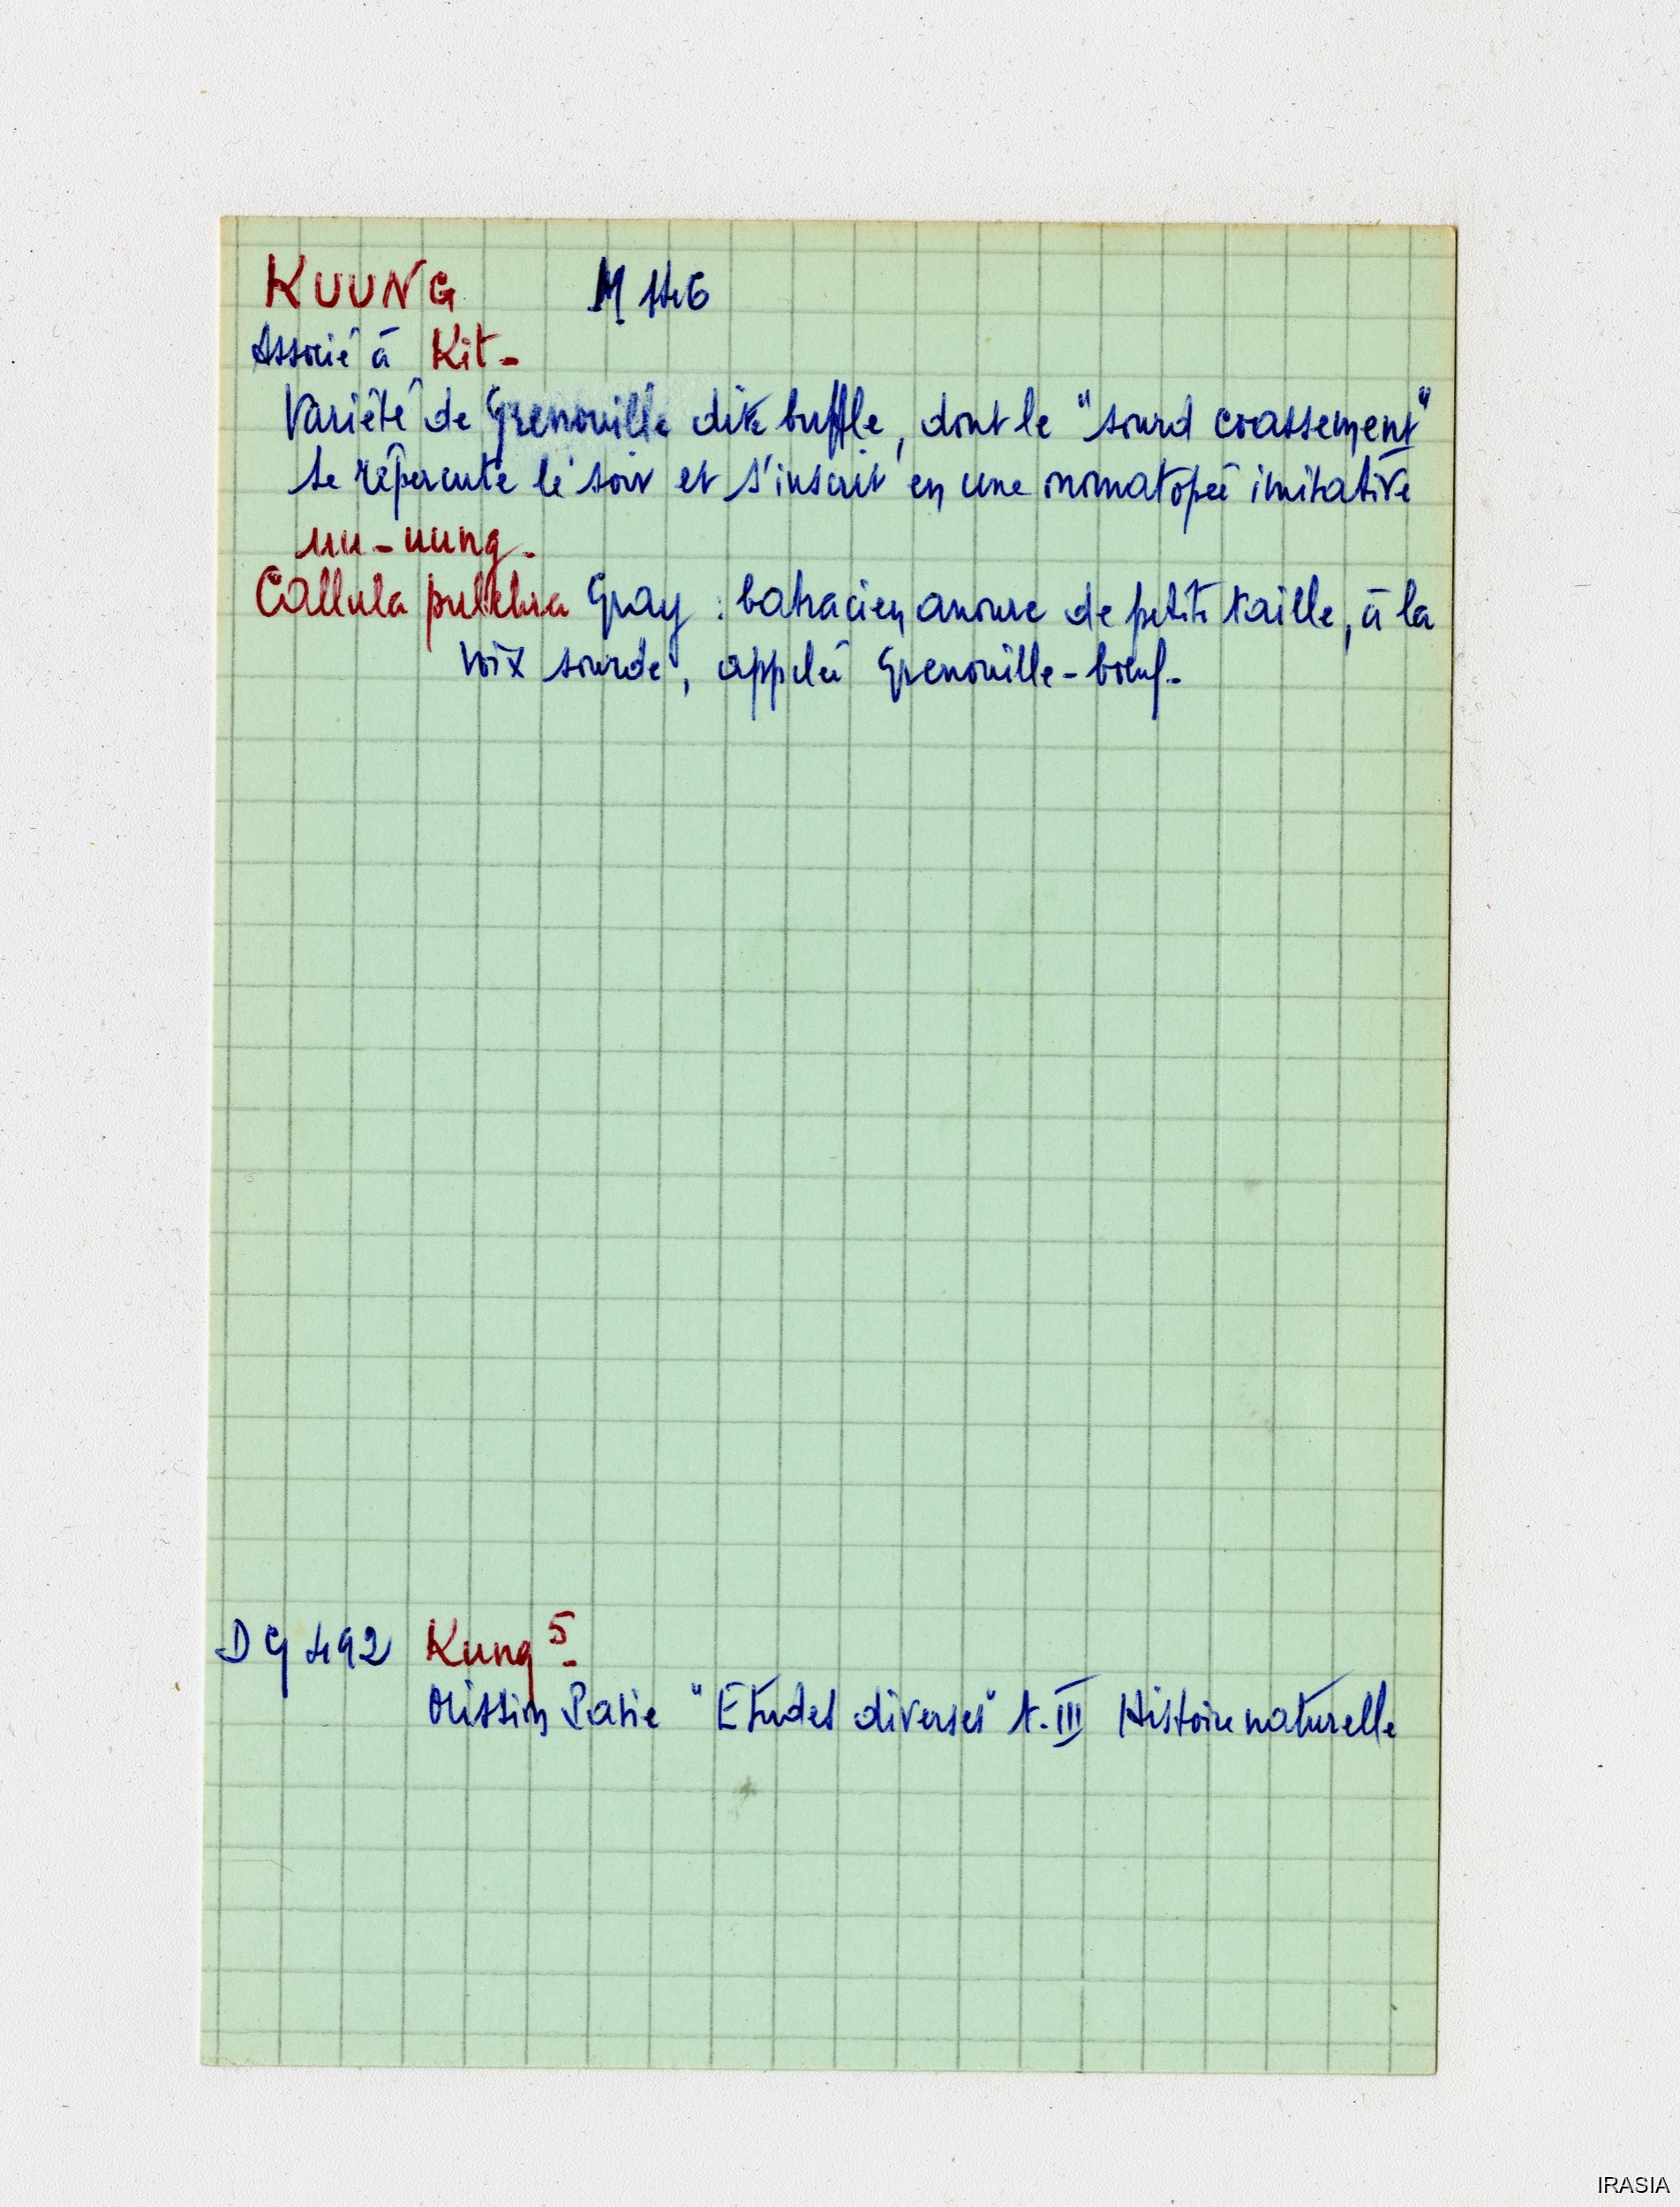 KUUNG M 146
Associé à Kit-
Variété de Grenouille dite buffle, dont le "sourd coassement"
se répercute le soir et s'inscrit en une onomatopée imitative
uu-uung.
Callula pulchra Gray : batracien anoure de petite taille, à la
voix sourde, appelé Grenouille-boeuf.
DG 492 Kung 5.
Mission Pavie "Etudes diverses" t. III Histoire naturelle
IRASIA